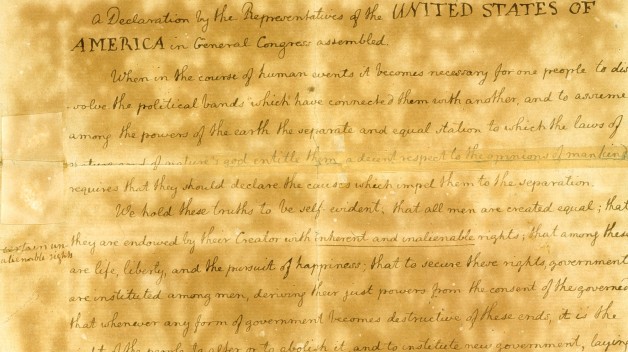 a Declaration by the Representatives of the UNITED STATES OF
AMERICA in General Congress assembled.
When in the course of human events it becomes necessary for one people to dis
solve the political bands which have connected them with another, and to assume
among the powers of the earth the separate and equal station to which the laws of
of nature's god entitle them, a decent respect to the opinions of mankind
requires that they should declare the causes which impel them to the separation.
We hold these truths to be self-evident; that all men are created equal; that
certain un-
alienable rights
they are endowed by their Creator with inherent and inalienable rights; that among these
are life, liberty, and the pursuit of happiness; that to secure these rights, government
are instituted among men, deriving their just powers from the consent of the governed
that whenever any form of government becomes destructive of these ends, it is the
of the people to alter or to abolish it, and to institute new government, laying